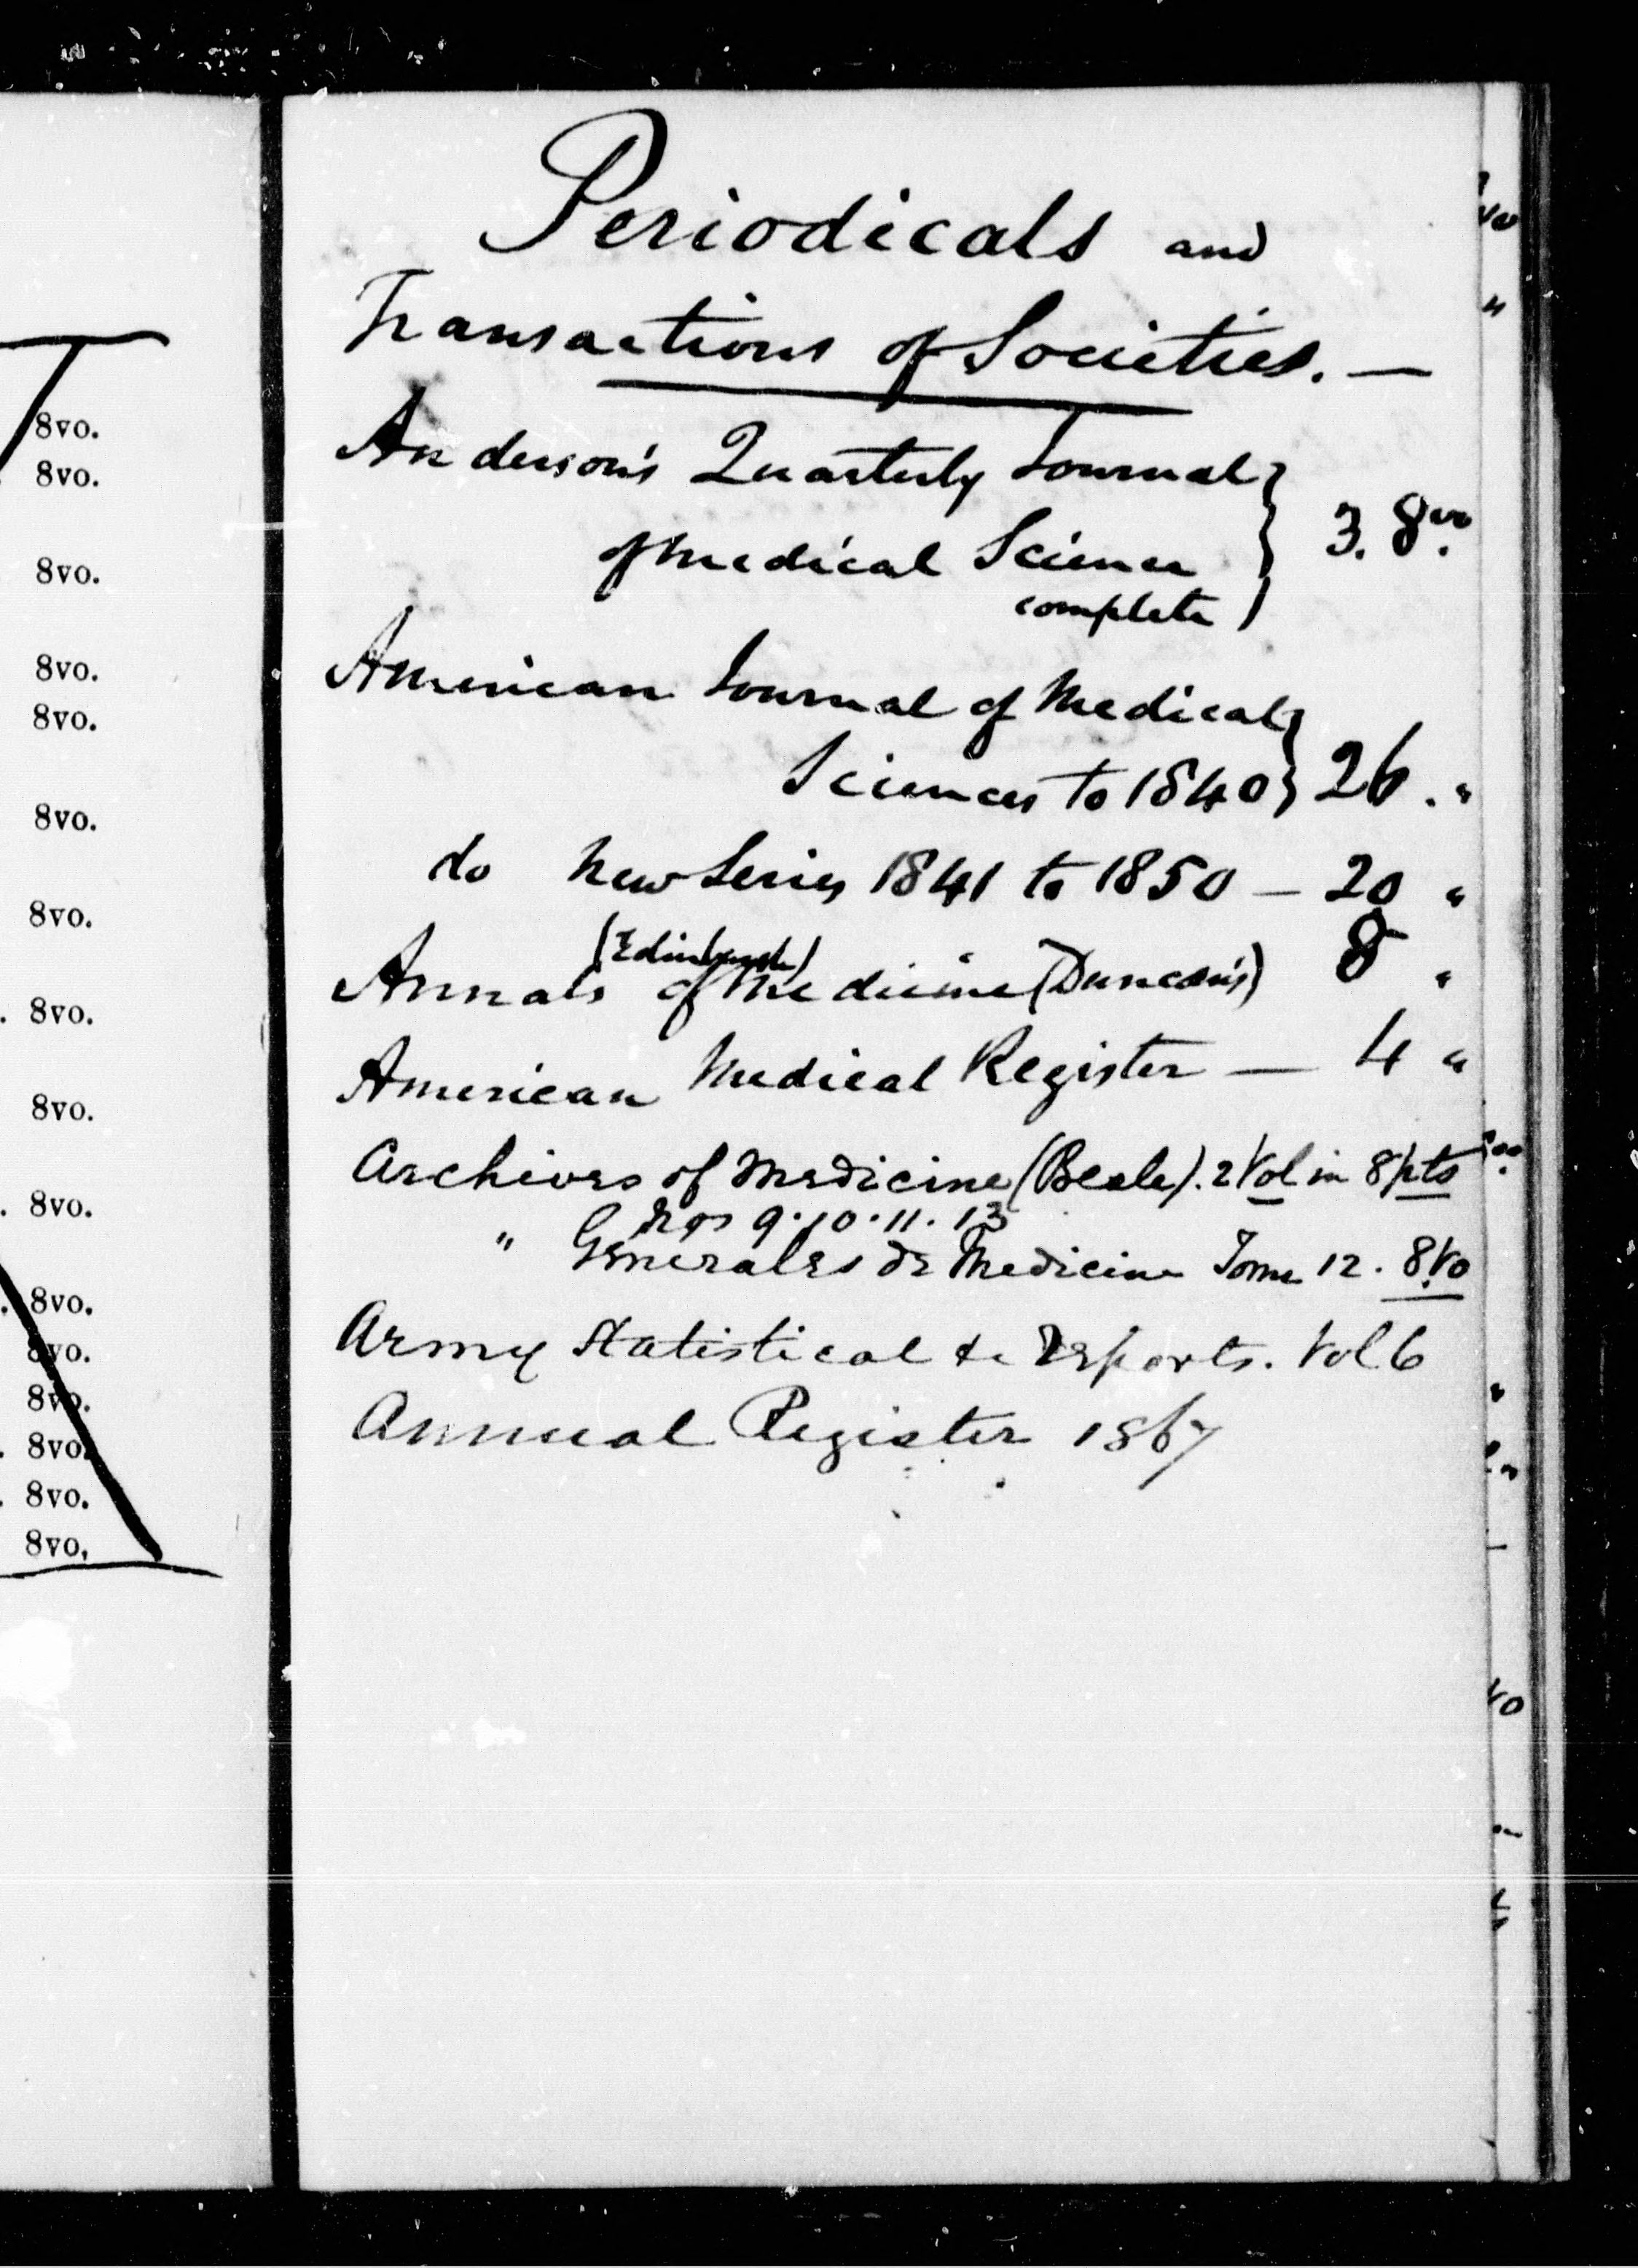 8vo.
8vo.
8vo.
8vo.
8vo.
8vo.
8vo.
. 8vo.
8vo.
. 8vo.
. 8vo.
8vo.
8vo.
. 8vo.
. 8vo.
8vo.
Periodicals and
Transactions of Societies. —
Anderson's Quarterly Journal
of Medical Science } 3. 8vo.
complete
American Journal of Medical
Sciences to 1840 } 26 . "
do New Series 1841 to 1850 — 20 "
(Edinburgh)
Annals of Medicine (Duncan's) 8 "
American Medical Register — 4 "
Archives of Medicine (Beale). 2 Vol in 8 pts
Nos 9. 10. 11. 13
" Generales de Medicine Tome 12. 8vo
Army Statistical &c Reports. Vol 6
Annual Register 1867